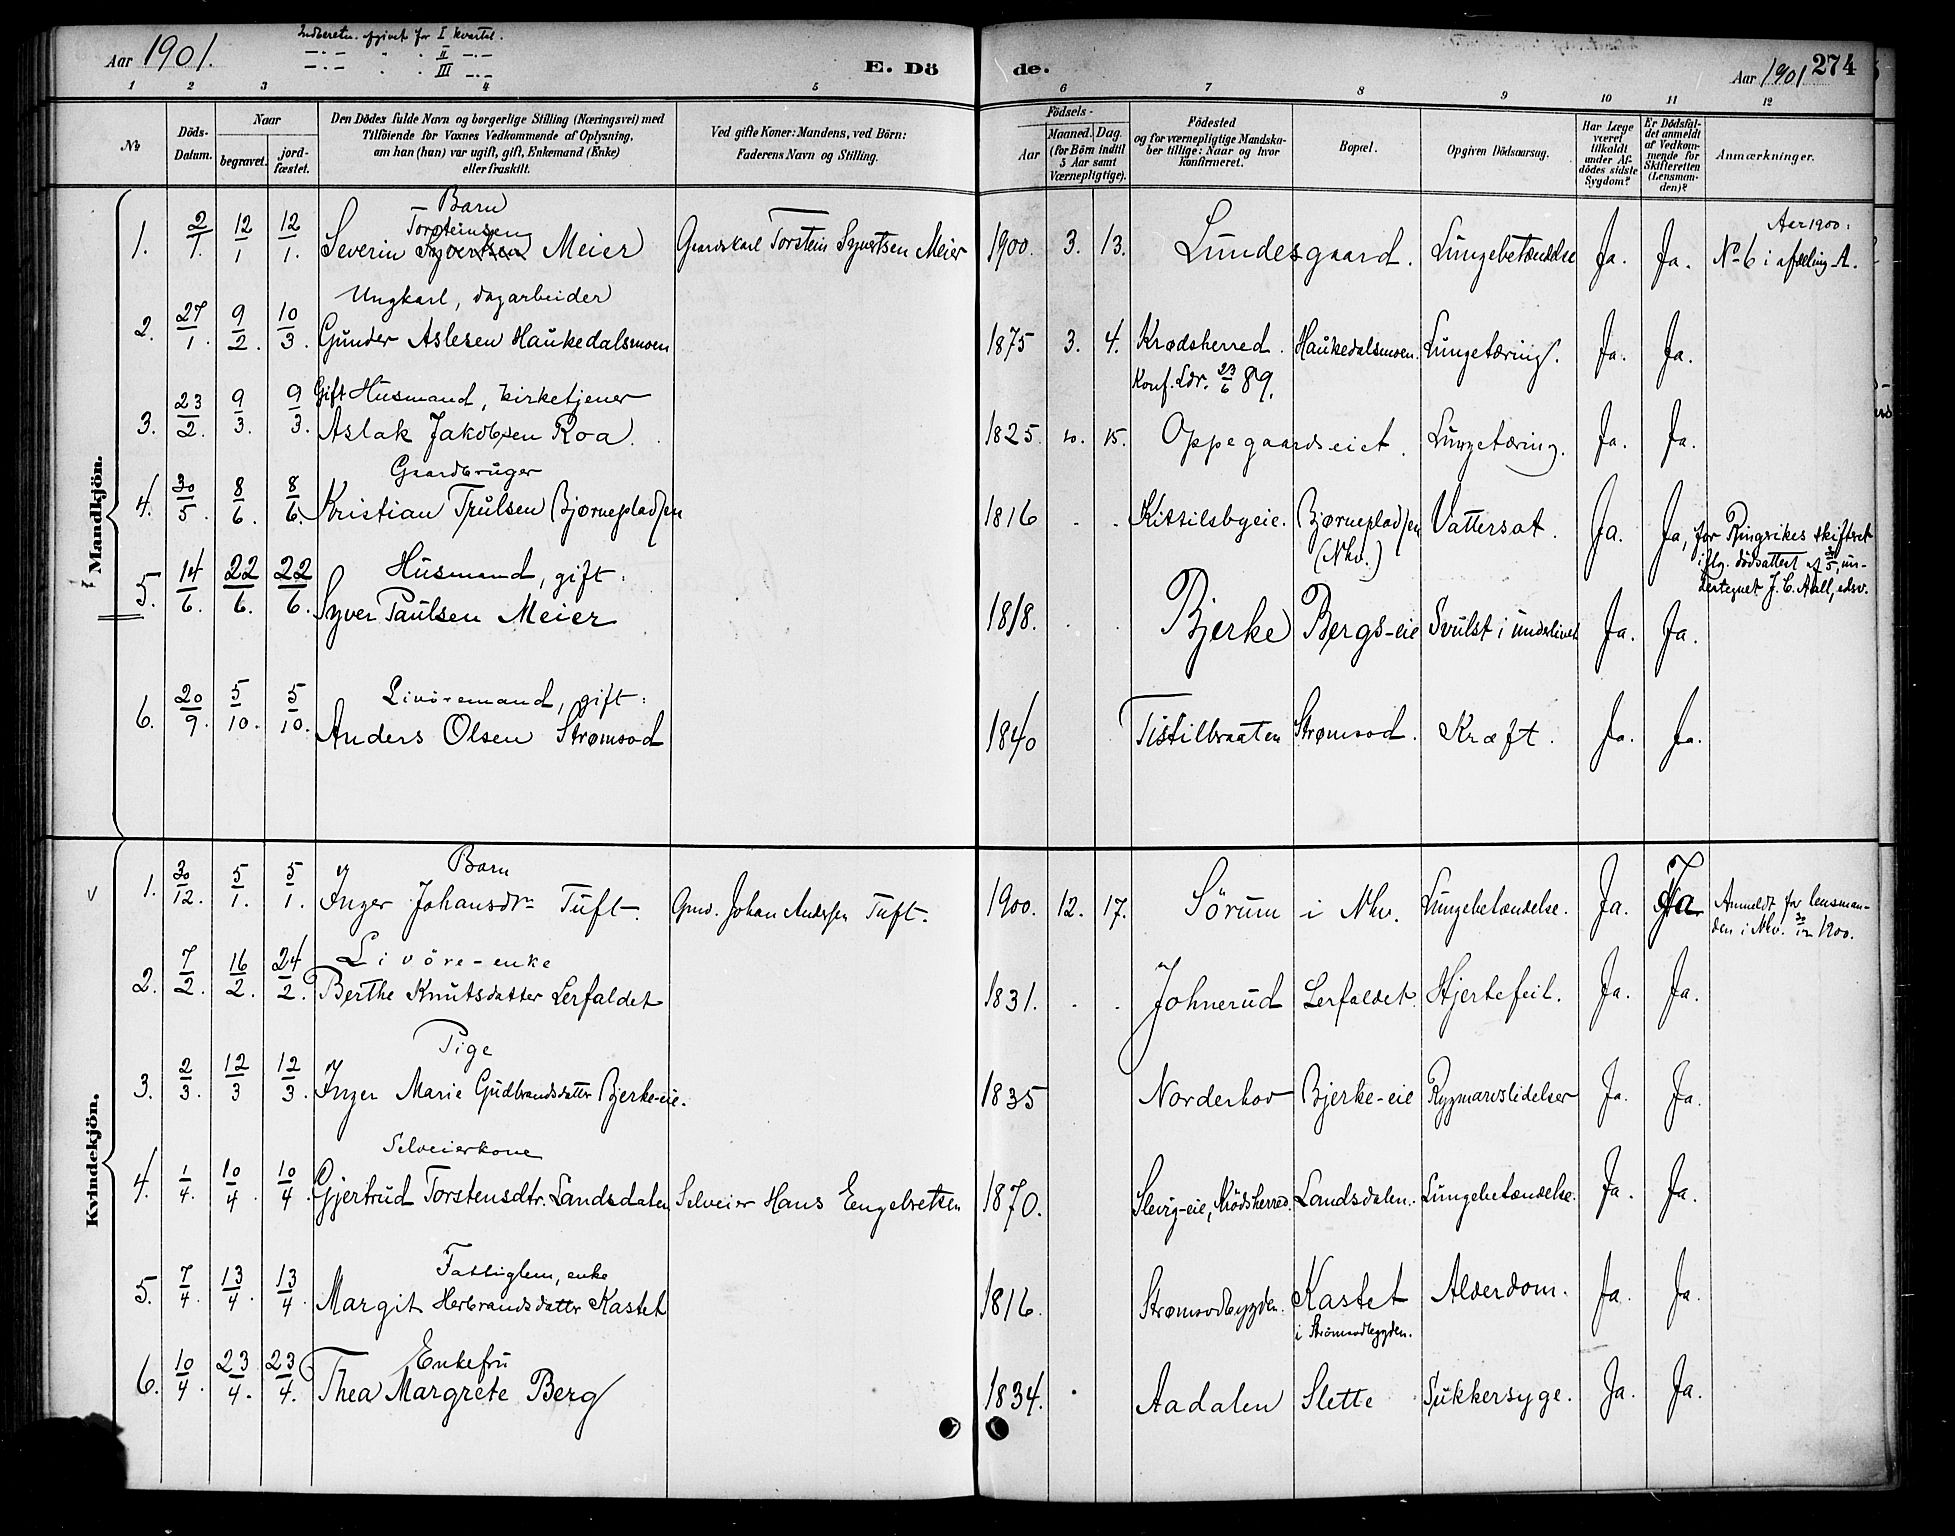 Aar 1901.
Indberetn. afgivet for I kvartal.
—.— " . II —.—
—.— " . III —.—
E. Dö
de.
Aar 1901
274
1 2 3 4 5 6 7 8 9 10 11 12
№
Döds-Datum.
Naar
begravet.
jord-fæstet.
Den Dödes fulde Navn og borgerlige Stilling (Næringsvei) med
Tilföiende for Voxnes Vedkommende af Oplysning,
om han (hun) var ugift, gift, Enkemand (Enke)
eller fraskilt.
Ved gifte Koner: Mandens, ved Börn:
Faderens Navn og Stilling.
Födsels-
Aar
Maaned. Dag.
(for Börn indtil
5 Aar samt
Værnepligtige).
Födested
og for værnepligtige Mandska-
ber tillige: Naar og hvor
Konfirmeret.
Bopæl.
Opgiven Dödsaarsag.
Har Læge
været
tilkaldt
under Af-
dödes sidste
Sygdom?
Er Dödsfal-
det anmeldt
af Vedkom-
mende for
Skifteretten
(Lensman-
den)?
Anmærkninger.
Mandkjön.
Barn
Torsteinsen
1. 2/1. 12/1 12/1. Severin Syvertsen Meier Gaardskarl Torstein Syvertsen Meier 1900. 3. 13. Lundesgaard. Lungebetændelse Ja. Ja. Aar 1900:
No 6 i afdeling A.
Ungkarl, dagarbeider
2. 27/1. 9/2. 10/3. Gunder Aslesen Haukedalsmoen 1875 3. 4. Krødsherred. Haukedalsmoen. Lungetæring. Ja. Ja.
Konf. Ldr. 23/6 89.
Gift Husmand, kirketjener
3. 23/2. 9/3. 9/3. Aslak Jakobsen Roa. 1825. 10. 15. Oppegaardseiet. Lungetæring. Ja. Ja.
Gaardbruger
4. 30/5. 8/6. 8/6. Kristian Trulsen Bjørnepladsen 1816 . . Kitsilsbyeie. Bjørnepladsen Vattersot. Ja. Ja, for Ringrikes skifteret
(Nhv.)
iflg. dödsattest af 31/5, un-
dertegnet J. C. Aall, edsv.
Husmand, gift:
5. 14/6. 22/6. 22/6. Syver Paulsen Meier 1818. . . Bjerke Bergs-eie Svulst i underlivet Ja. Ja.
Livöremand, gift:
6. 20/9. 5/10. 5/10. Anders Olsen Strømsod 1840 Tistilbraaten Strømsod. Kræft. Ja. Ja.
Kvindekjön.
Barn
1. 30/12. 5/1. 5/1. Inger Johansdr. Tuft. Gmd. Johan Andersen Tuft. 1900. 12. 17. Sörum i Nhv. Lungebetændelse. Ja. Ja Anmeldt for lensman-
den i Nhv. 30/12 1900.
Livöre-enke
2. 7/2. 16/2. 24/2. Berthe Knutsdatter Lerfaldet 1831. . . Johnerud Lerfaldet. Hjertefeil. Ja. Ja.
Pige
3. 2/3. 12/3 12/3. Inger Marie Gudbrandsdatter Bjerke-eie. 1835 Norderhov Bjerke-eie Rygmarvslidelser Ja. Ja.
Selveierkone
4. 1/4. 10/4. 10/4. Gjertrud Torstensdtr. Landsdalen Selveier Hans Engebretsen 1870. Slevig-eie, Krödsherred. Landsdalen. Lungebetændelse. Ja. Ja.
Fattiglem, enke
5. 7/4. 13/4. 13/4. Margit Herbrandsdatter Kastet 1816. Strømsodbygden. Kastet Alderdom. Ja. Ja.
i Strömsodbygden.
Enkefru
6. 10/4. 23/4. 23/4. Thea Margrete Berg 1834. . Aadalen Slette Sukkersyge. Ja. Ja.